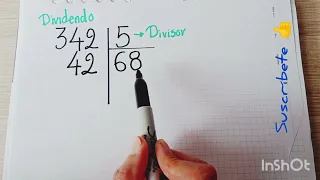 Dividendo
342 5 → Divisor
42 68
Suscribete 👍
InShOt